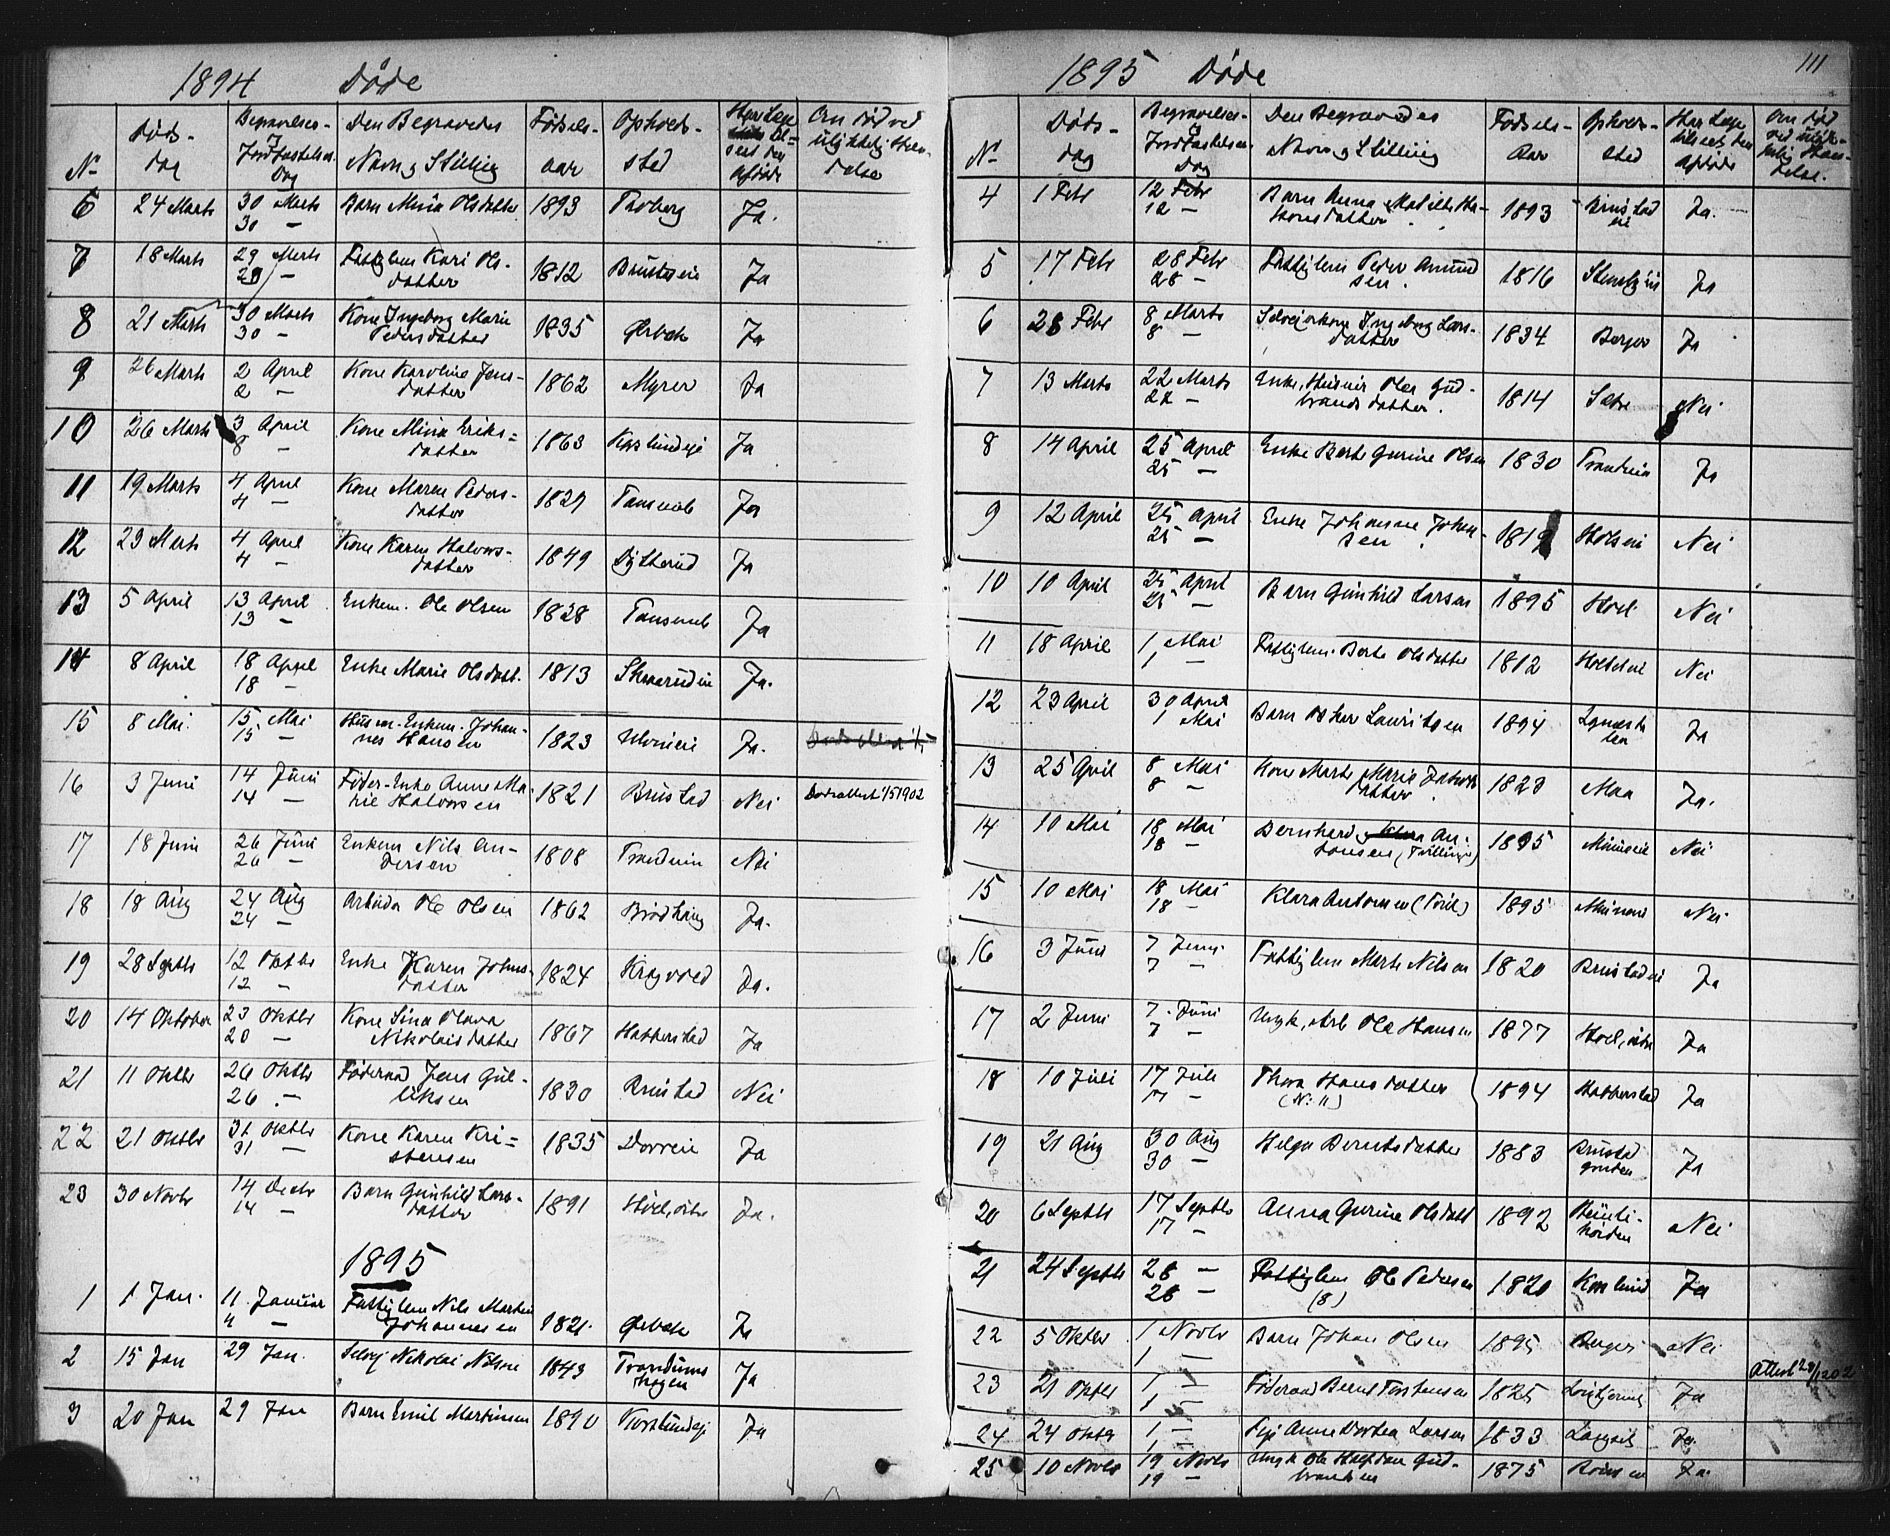 1894 Døde
No
Døds-
dag
Begravelses-
Jordfæstelses
Dag
Den Begravedes
Navn og Stilling
Fødsels-
aar
Opholds-
sted
Har Læge
Om død ved
ulykkelig Hæn-
delse
6 24 Marts 30 Marts Barn Mina Olsdatter 1893 Ja.
30 —
7 18 Marts 29 Marts Fattiglem Kari Ols- 1812 Ja
29 — datter
8 21 Marts 30 Marts Kone Ingeborg Marie 1835 Ørbæk Ja
30 — Pedersdatter
9 26 Marts 2 April Kone Karoline Jens- 1862 Myrer Ja
2 — datter
10 26 Marts 3 April Kone Mina Eriks= 1863 Ja
8 — datter
11 19 Marts 4 April Kone Maren Peders- Ja
4 — datter
12 23 Marts 4 April Kone Karen Halvors- 1849 Ja
4 — datter
13 5 April 13 April Enkem. Ole Olsen 1828 Ja
13 —
14 8 April 18 April Enke Marie Olsdatt. 1813 Ja.
18 —
15 8 Mai. 15 Mai Husm. Enkem. Johan- 1823 Ja.
15 — nes Hansen
16 3 Juni 14 Juni Føder-Enke Anne Ma- 1821 Brustad Nei Dødsattest 1/5 1902
14 — rie Halvorsen
17 18 Juni 26 Juni Enkem Nils An- 1808 Nei
26 — dersen
18 18 Aug 24 Aug Arbeider Ole Olsen 1862 Brødhaug Ja.
24 —
19 28 Septbr 12 Oktbr Enke Karen Johns- 1824 Kragvold Ja.
12 — datter
20 14 Oktober 23 Oktbr Kone Lina Olava 1867 Hatterstad Ja
20 — Nikolaisdatter
21 11 Oktbr 26 Oktbr Føderaad Jens Gul- 1830 Brustad Nei
26 — liksen
22 21 Oktbr 31 Oktbr Kone Karen Kri= 1835 Ja
31 — stensen
23 30 Novbr 14 Decbr Barn Gunhild Lars- 1891 Ja.
14 — datter
1895
1 1 Jan. 11 Januar Fattiglem Nils Martin 1821 Ørbæk Ja
— Johannesen
2 15 Jan 29 Jan. Selvej Nikolai Nilsen 1843 Trandums Ja
hagen
3 20 Jan 29 Jan Barn Emil Martinsen 1890 Ja
1895 Døde
111
No
Døds-
dag
Begravelses-
Jordfæstelses
Dag
Den Begravedes
Navn og Stilling
Fødsels-
Aar
Ophold-
sted
Har Læge
Om død
ved ulyk-
kelig Hæn-
delse.
4 1 Febr 12 Febr Barn Anna Mathilde Ha- 1893 Brustad Ja.
12 — konsdatter eie
5 17 Febr 28 Febr Fattiglem Peder Amund 1816 Ja
28 — sen.
6 28 Febr 8 Marts Selvejerkone Ingeborg Lars- 1834 Berger Ja
8 — datter
7 13 Marts 22 Marts Enke, Husmor Olea Gud- 1814 Nei
22 — brandsdatter.
8 14 April 25 April Enke Berte Gurine Olsen 1830 Ja
25 —
9 12 April 25 April Enke Johanne Johan- Nei
25 — sen
10 10 April 25 April Barn Gunhild Larsen 1895 Hoel Nei
25 —
11 18 April 1 Mai Fattiglem Berte Olsdatter 1812 Nei
1 —
12 23 April 30 April Barn Osker Lauritsen 1894 Ja
1 Mai
13 25 April 8 Mai Kone Marte Marie Jakobs 1823 Maa Ja.
8 — datter
14 10 Mai 18 Mai Bernhard An- 1895 Nei
18 — tonsen (Tvilling)
15 10 Mai 18 Mai Klara Antonsen (Tvil) 1895 Nei
18 —
16 3 Juni 7 Juni Fattiglem Marte Nilsen 1820 Brustadei Ja
7 —
17 2 Juni 7 Juni Ungk, Arb Ole Hansen 1877 Ja
7 —
18 10 Juli 17 Juli Thora Hansdatter 1894 Hatterstad Ja
17 — (No 11)
19 21 Aug 30 Aug Helga Berntsdatter 1883 Brustad Ja
30 —
20 6 Septbr 17 Septbr Anna Gurine Olsdatt 1892 Nei
17 —
21 24 Septbr 28 — Fattiglem Ole Pedersen 1820 Ja
28 — (8)
22 5 Oktbr 1 Novbr Barn Johan Olsen 1895 Berger Nei
1 —
23 21 Oktbr 1 — Føderaad Bernt Torstensen 1825 Ja Attest
1 —
24 24 Oktbr 1 — Pige Anne Dortea Larsen 1833 Ja.
1 —
25 10 Novbr 19 Novbr Ungk Ole Halfdan Gud- 1875 Ja.
19 — brandsen